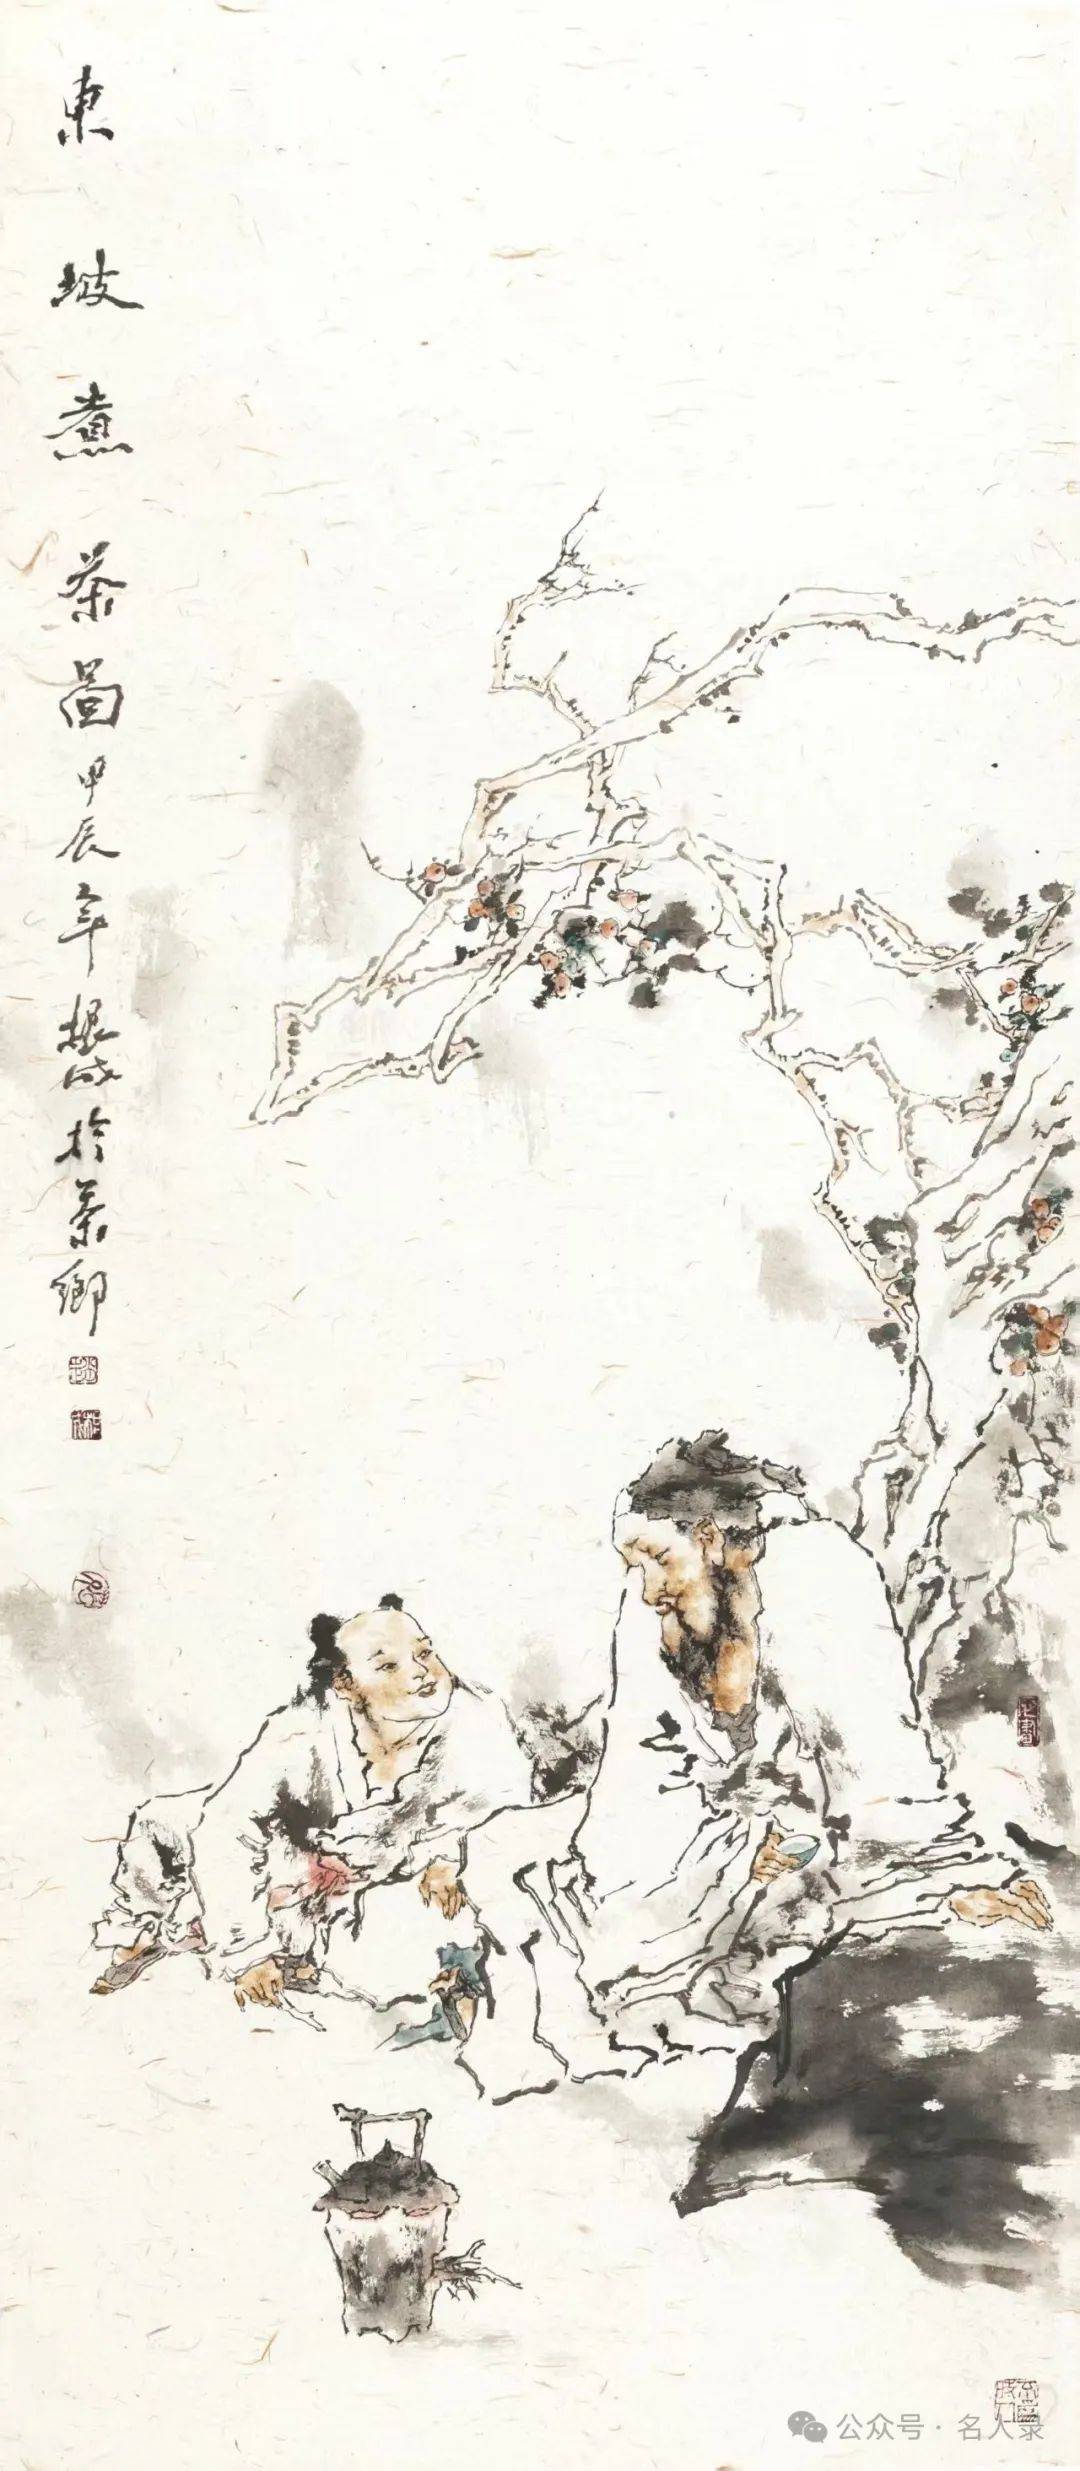 東坡煮茶圖甲辰年根成於茶鄉
公众号·名人录